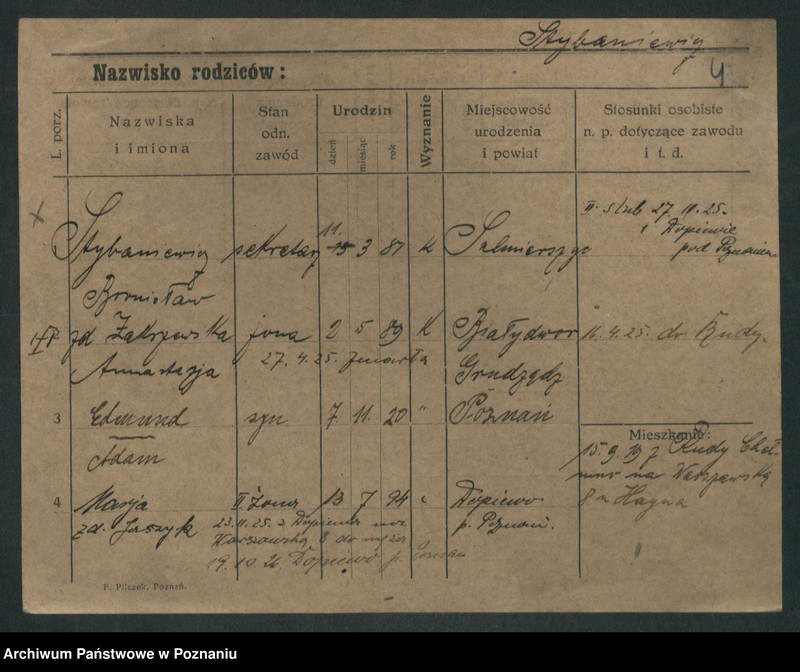 Stybaniewicz
4
Nazwisko rodziców:
L. porz.
Nazwiska
i imiona
Stan
odn.
zawód
Urodzin
dzień
miesiąc
rok
Wyznanie
Miejscowość
urodzenia
i powiat
Stosunki osobiste
n. p. dotyczące zawodu
i t. d.
II. ślub 27. 11. 25.
Dopiewie
pod Poznaniem
11.
Stybaniewicz sekretarz 3 87 k
Bronisław
zd Zakrzewska żona 2 5 89 K Białydwór 16. 4. 25. do Rudy
27. 4. 25. zmarła
Annastazja Grudządz
3 Edmund syn 7. 11. 20 " Poznań
Adam
Mieszkanie:
15. 9. 19 z Rudy
na Warszawską
4 Marja II żona 13 7 94 Dopiewo
8 m
zd. Jaszyk 23. 11. 25. z Dopiewa p. Poznań.
Warszawską 8 do męża
19. 10 26. Dopiewo p. Poznań
F. Pilczek, Poznań.
Archiwum Państwowe w Poznaniu